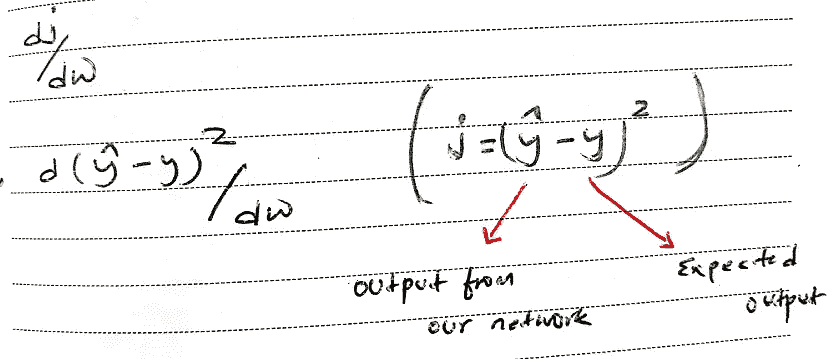 dj/dw
d(ŷ-y)²/dw
(j=(ŷ-y)²)
output from
our network
Expected
output